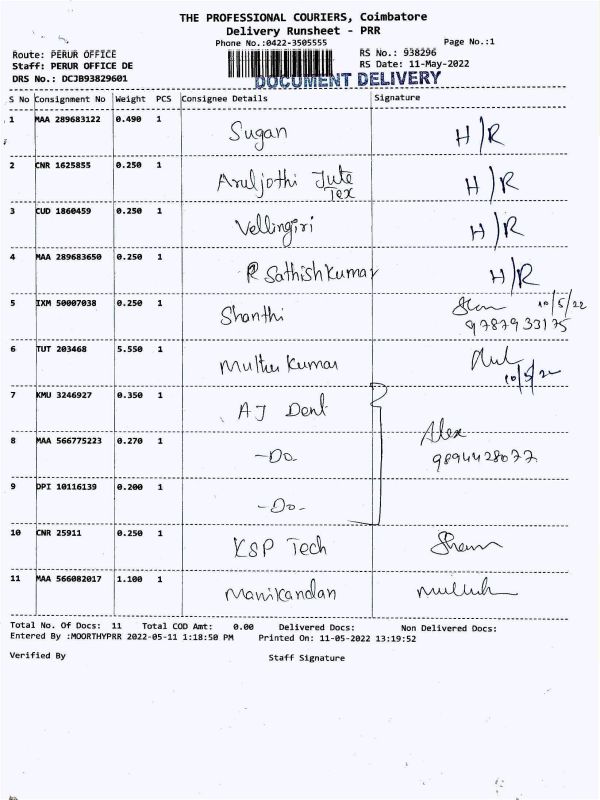 THE PROFESSIONAL COURIERS, Coimbatore
Delivery Runsheet - PRR
Phone No.:0422-3505555
Page No.:1
Route: PERUR OFFICE
RS No.: 938296
Staff: PERUR OFFICE DE
RS Date: 11-May-2022
DRS No.: DCJB93829601
DOCUMENT DELIVERY
S No Consignment No Weight PCS Consignee Details Signature
1 MAA 289683122 0.490 1 Sugan H/R
2 CNR 1625855 0.250 1 Aruljothi Jute H/R
Tex
3 CUD 1860459 0.250 1 Vellingiri H/R
4 MAA 289683650 0.250 1 R Sathish Kumar H/R
5 IXM 50007038 0.250 1 Shanthi 10/5/22
9787933175
6 TUT 203468 5.550 1 Muthu Kumar
10/5/22
7 KMU 3246927 0.350 1 AJ Dent
Alex
8 MAA 566775223 0.270 1 -Do- 9894428077
9 DPI 10116139 0.200 1 -Do-
10 CNR 25911 0.250 1 KSP Tech
11 MAA 566082017 1.100 1 Manikandan
Total No. Of Docs: 11 Total COD Amt: 0.00 Delivered Docs: Non Delivered Docs:
Entered By :MOORTHYPRR 2022-05-11 1:18:50 PM Printed On: 11-05-2022 13:19:52
Verified By Staff Signature